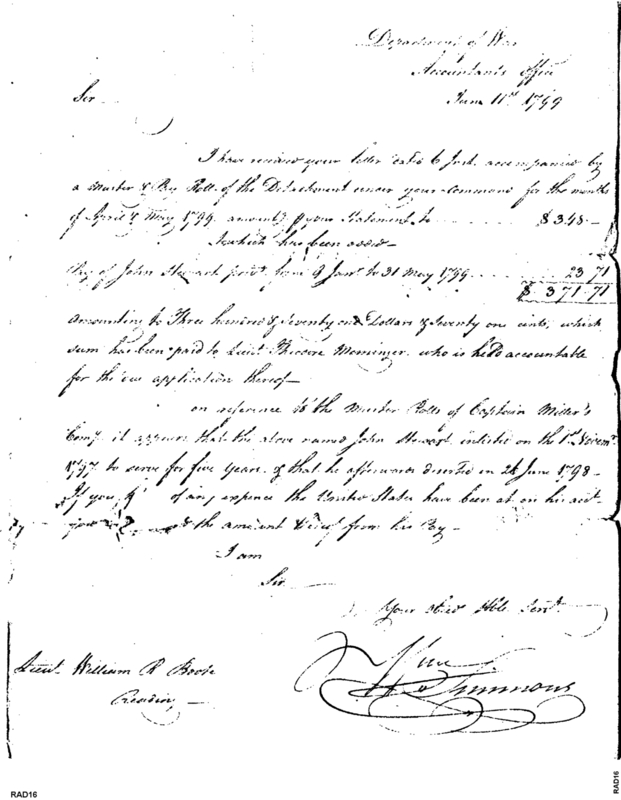 Department of War
Accountant's Office
June 11th 1799
Sir
I have received your letter dated 6 Inst. accompanied by
a Muster & Pay Roll of the Detachment under your command for the months
of April & May 1799. amountg pr your Statement to $348-
To which has been added-
Pay of John Stewart from 9 Jany to 31 May 1799 23 71
$371.71
Amounting to Three hundred & Seventy one Dollars & Seventy one cents, which
sum has been paid to Lieut Theodore Memminger who is held accountable
for the due application thereof-
on reference to the Muster Rolls of Captain Miller's
Compy it appears that the above named John Stewart inlisted on the 1st
1797 to serve for five Years, & that he afterwards deserted in 26 June 1798-
If you of any expence the United States have been at on his acct
the amount from his Pay-
I am
Sir
Your Obed Hble Servt
Wm Simmons
Lieut. William R Boote
Reading
RAD16
RAD16